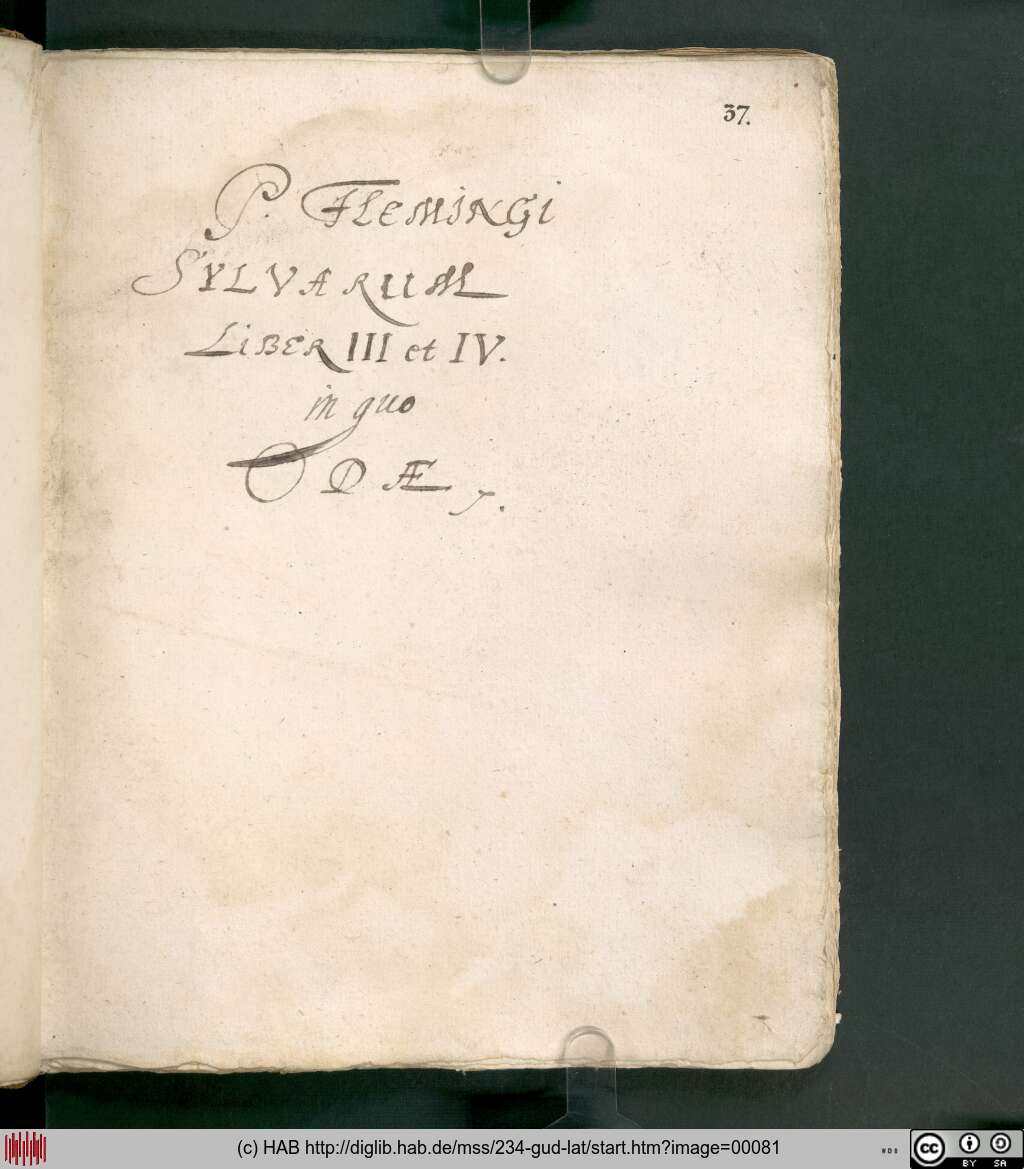 37.
P. FLEMINGI
SYLVARUM
LIBER III et IV.
in quo
ODÆ.
(c) HAB http://diglib.hab.de/mss/234-gud-lat/start.htm?image=00081
cc BY SA